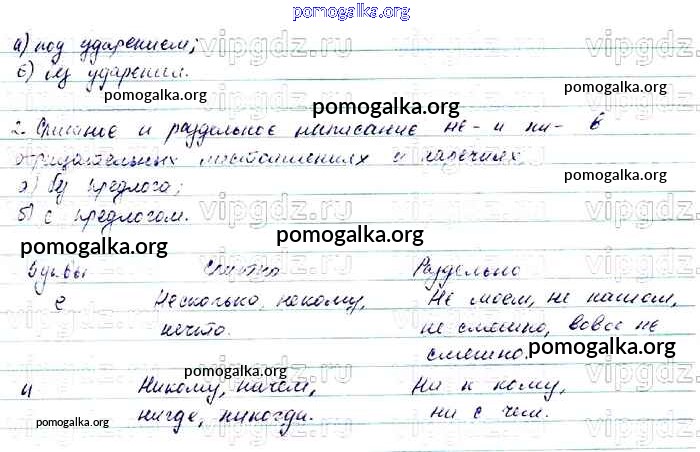 pomogalka.org
а) под ударением;
б) без ударения.
vipgdz.ru vipgdz.ru
pomogalka.org
pomogalka.org
2. Слитное и раздельное написание не- и ни- в
отрицательных местоимениях и наречиях
pomogalka.org
а) без предлога;
б) с предлогом.
vipgdz.ru vipgdz.ru
pomogalka.org
pomogalka.org
Буквы Слитно Раздельно
е Несколько, некому, Не моем, не нашом,
нечто. не смешно, вовсе не
смешно.
pomogalka.org
vipgdz.ru vipgdz.ru
pomogalka.org
и Никому, ничем, Ни к кому,
нигде, никогда. ни с чем.
pomogalka.org
pomogalka.org